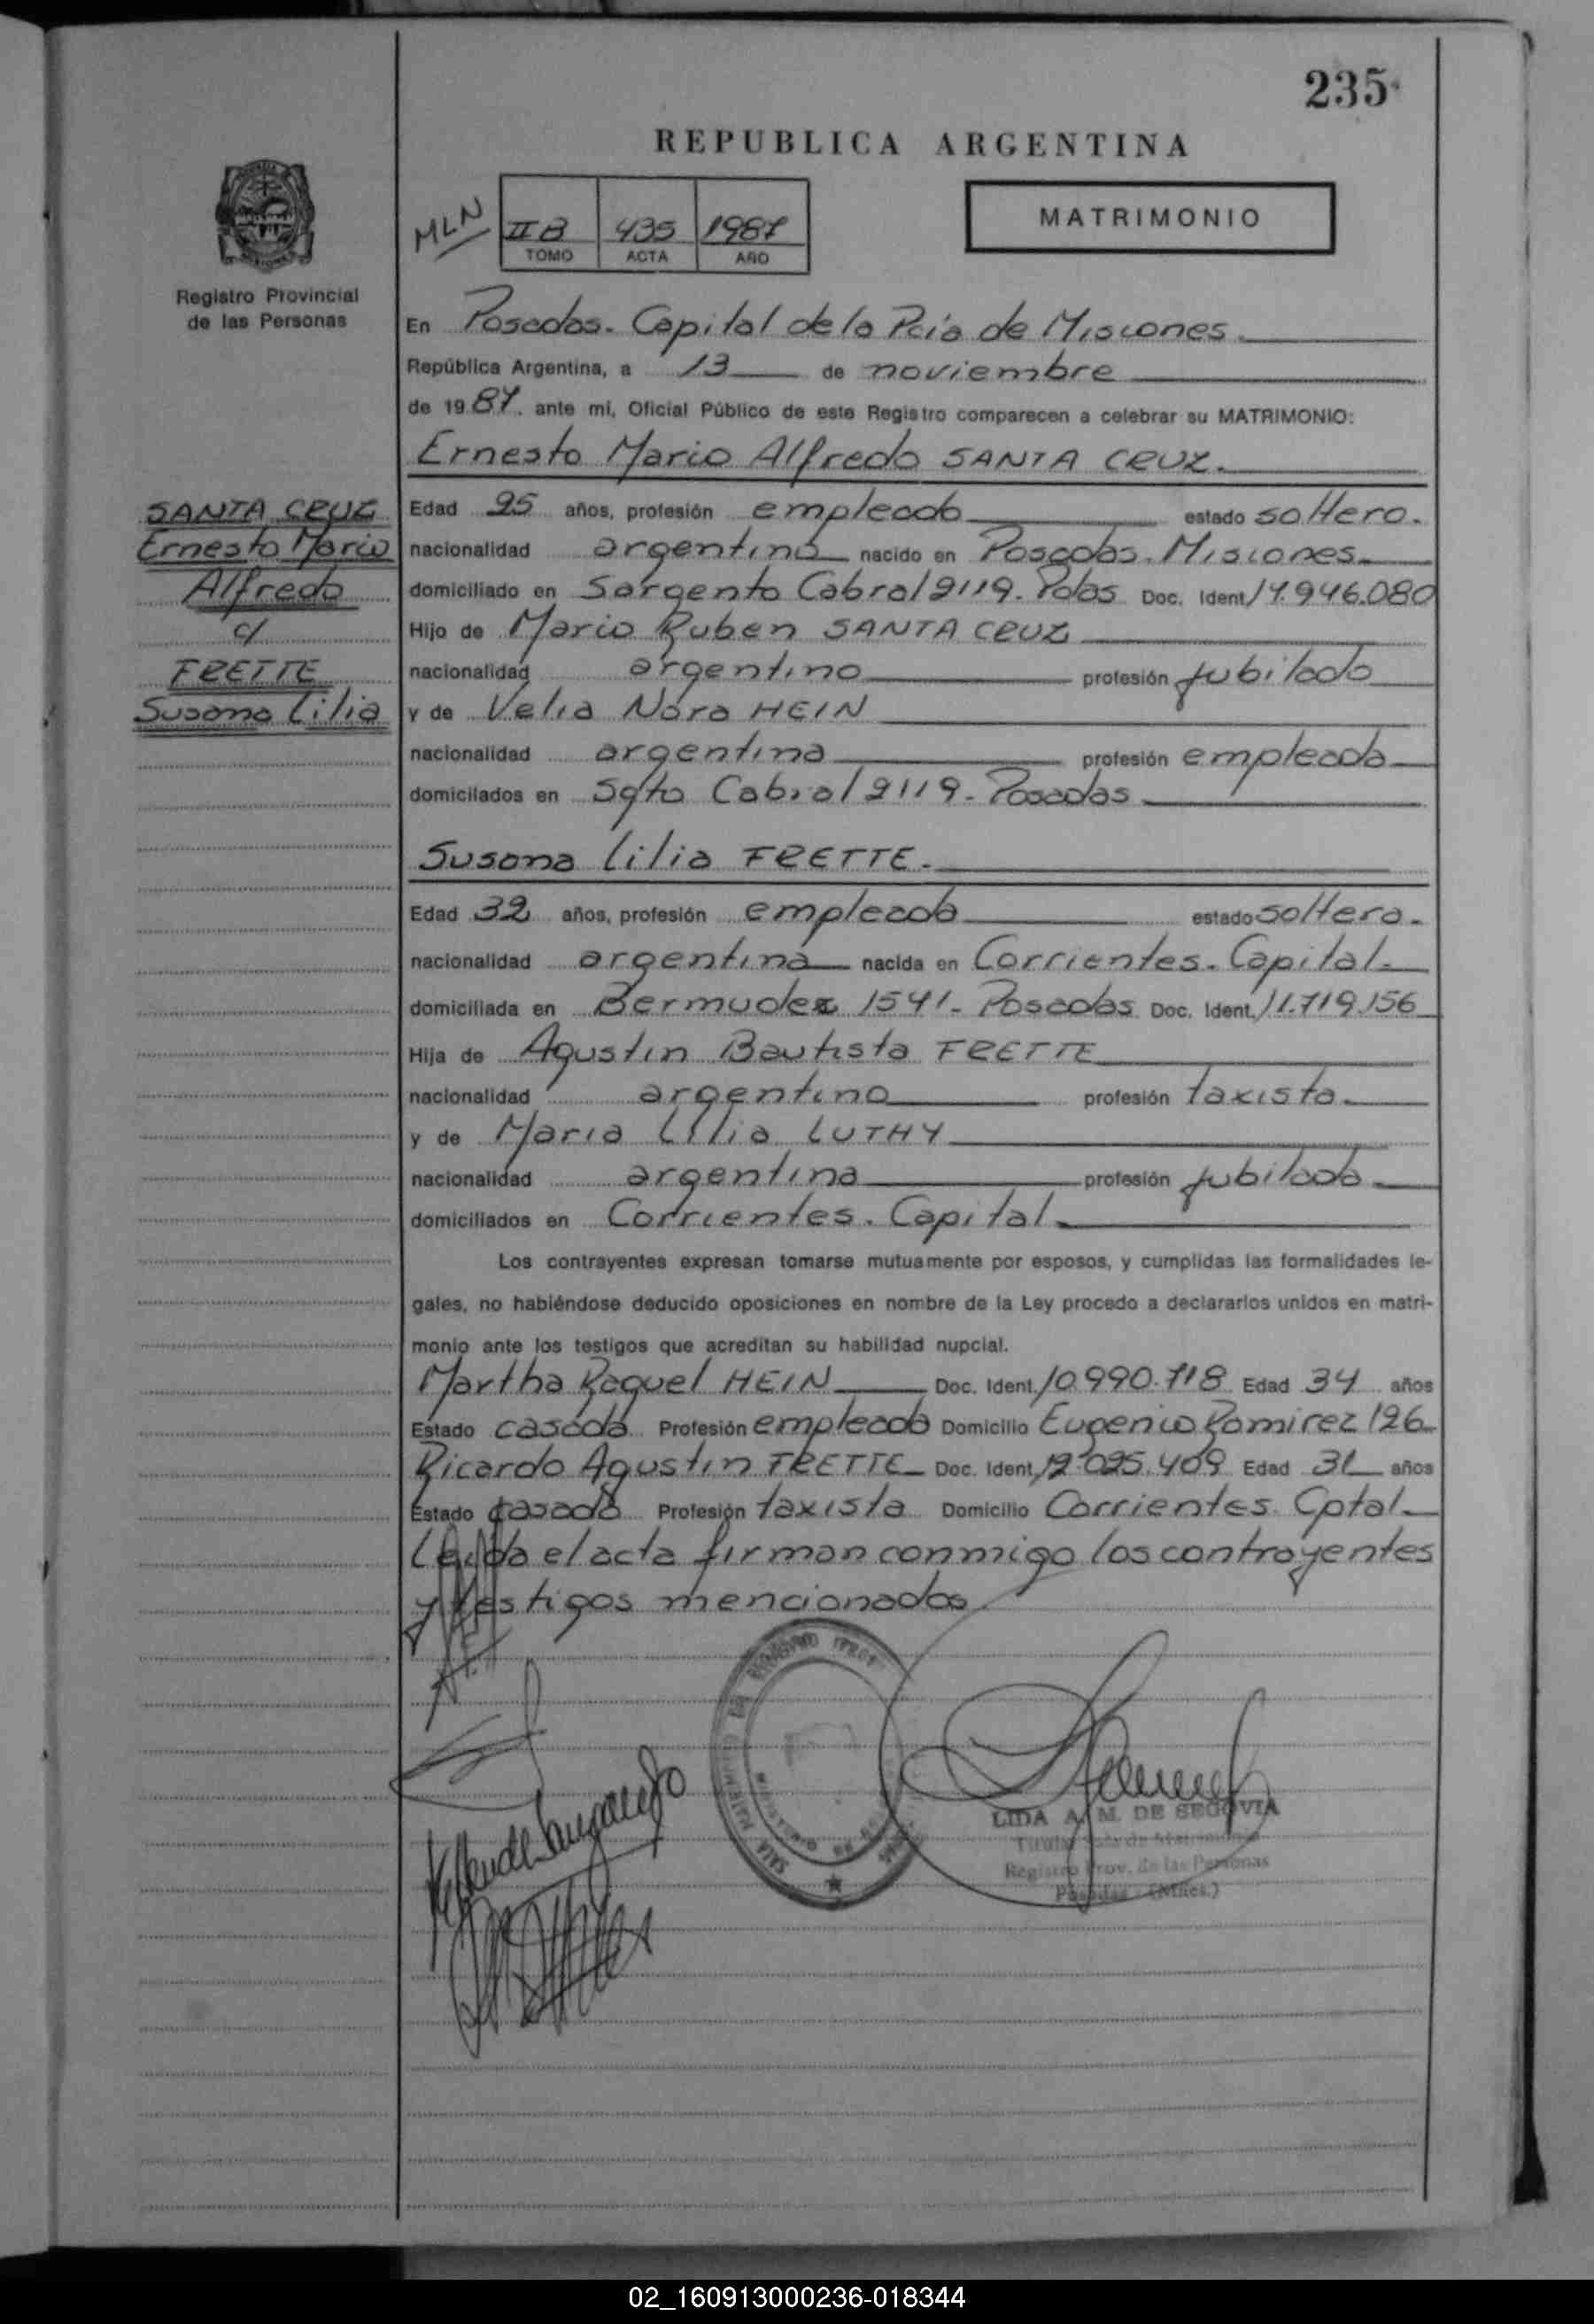 235
REPUBLICA ARGENTINA
MLN
II B 435 1987
TOMO ACTA AÑO
MATRIMONIO
Registro Provincial
de las Personas
En Posadas. Capital de la Pcia de Misiones
República Argentina, a 13 de noviembre
de 1987. ante mí, Oficial Público de este Registro comparecen a celebrar su MATRIMONIO:
Ernesto Mario Alfredo SANTA CRUZ.
SANTA CRUZ
Ernesto Mario
Alfredo
c/
FRETTE
Susana Lilia
Edad 25 años, profesión empleado estado soltero.
nacionalidad argentino nacido en Posadas. Misiones.
domiciliado en Sargento Cabral 2119. Pdas Doc. Ident. 14.946.080
Hijo de Mario Ruben SANTA CRUZ
nacionalidad argentino profesión jubilado
y de Velia Nora HEIN
nacionalidad argentina profesión empleada
domicilados en Sgto Cabral 2119. Posadas
Susana Lilia FRETTE.
Edad 32 años, profesión empleada estado soltera.
nacionalidad argentina nacida en Corrientes. Capital.
domiciliada en Bermudez 1541. Posadas Doc. Ident. 11.719.156
Hija de Agustin Bautista FRETTE
nacionalidad argentino profesión taxista.
y de Maria Lilia LUTHY
nacionalidad argentina profesión jubilada
domiciliados en Corrientes. Capital.
Los contrayentes expresan tomarse mutuamente por esposos, y cumplidas las formalidades le-
gales, no habiéndose deducido oposiciones en nombre de la Ley procedo a declararlos unidos en matri-
monio ante los testigos que acreditan su habilidad nupcial.
Martha Raquel HEIN Doc. Ident. 10.990.718 Edad 34 años
Estado casada Profesión empleada Domicilio Eugenio Ramirez 126
Ricardo Agustin FRETTE Doc. Ident. 12.025.409 Edad 31 años
Estado casado Profesión taxista Domicilio Corrientes. Cptal
Leída el acta firman conmigo los contrayentes
y testigos mencionados
LIDA A. M. DE SEGOVIA
Registro Prov. de las Personas
Posadas (Mnes.)
02_160913000236-018344